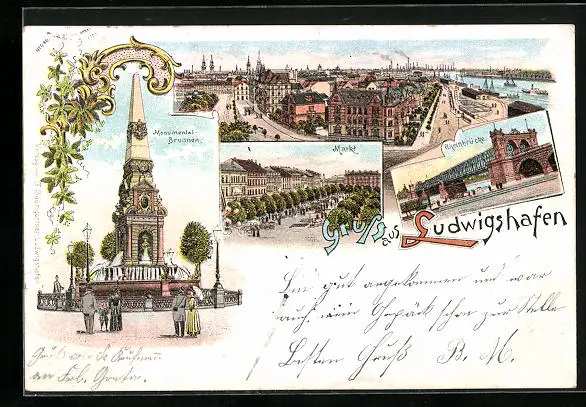 Monumental-
Brunnen.
Markt
Rheinbrücke.
Gruss aus Ludwigshafen
Bin gut angekommen und war
auch mein Gepäck schon zur Stelle
Besten Gruß B. M.
Gruß Kaufmann
an Frl. Greta.